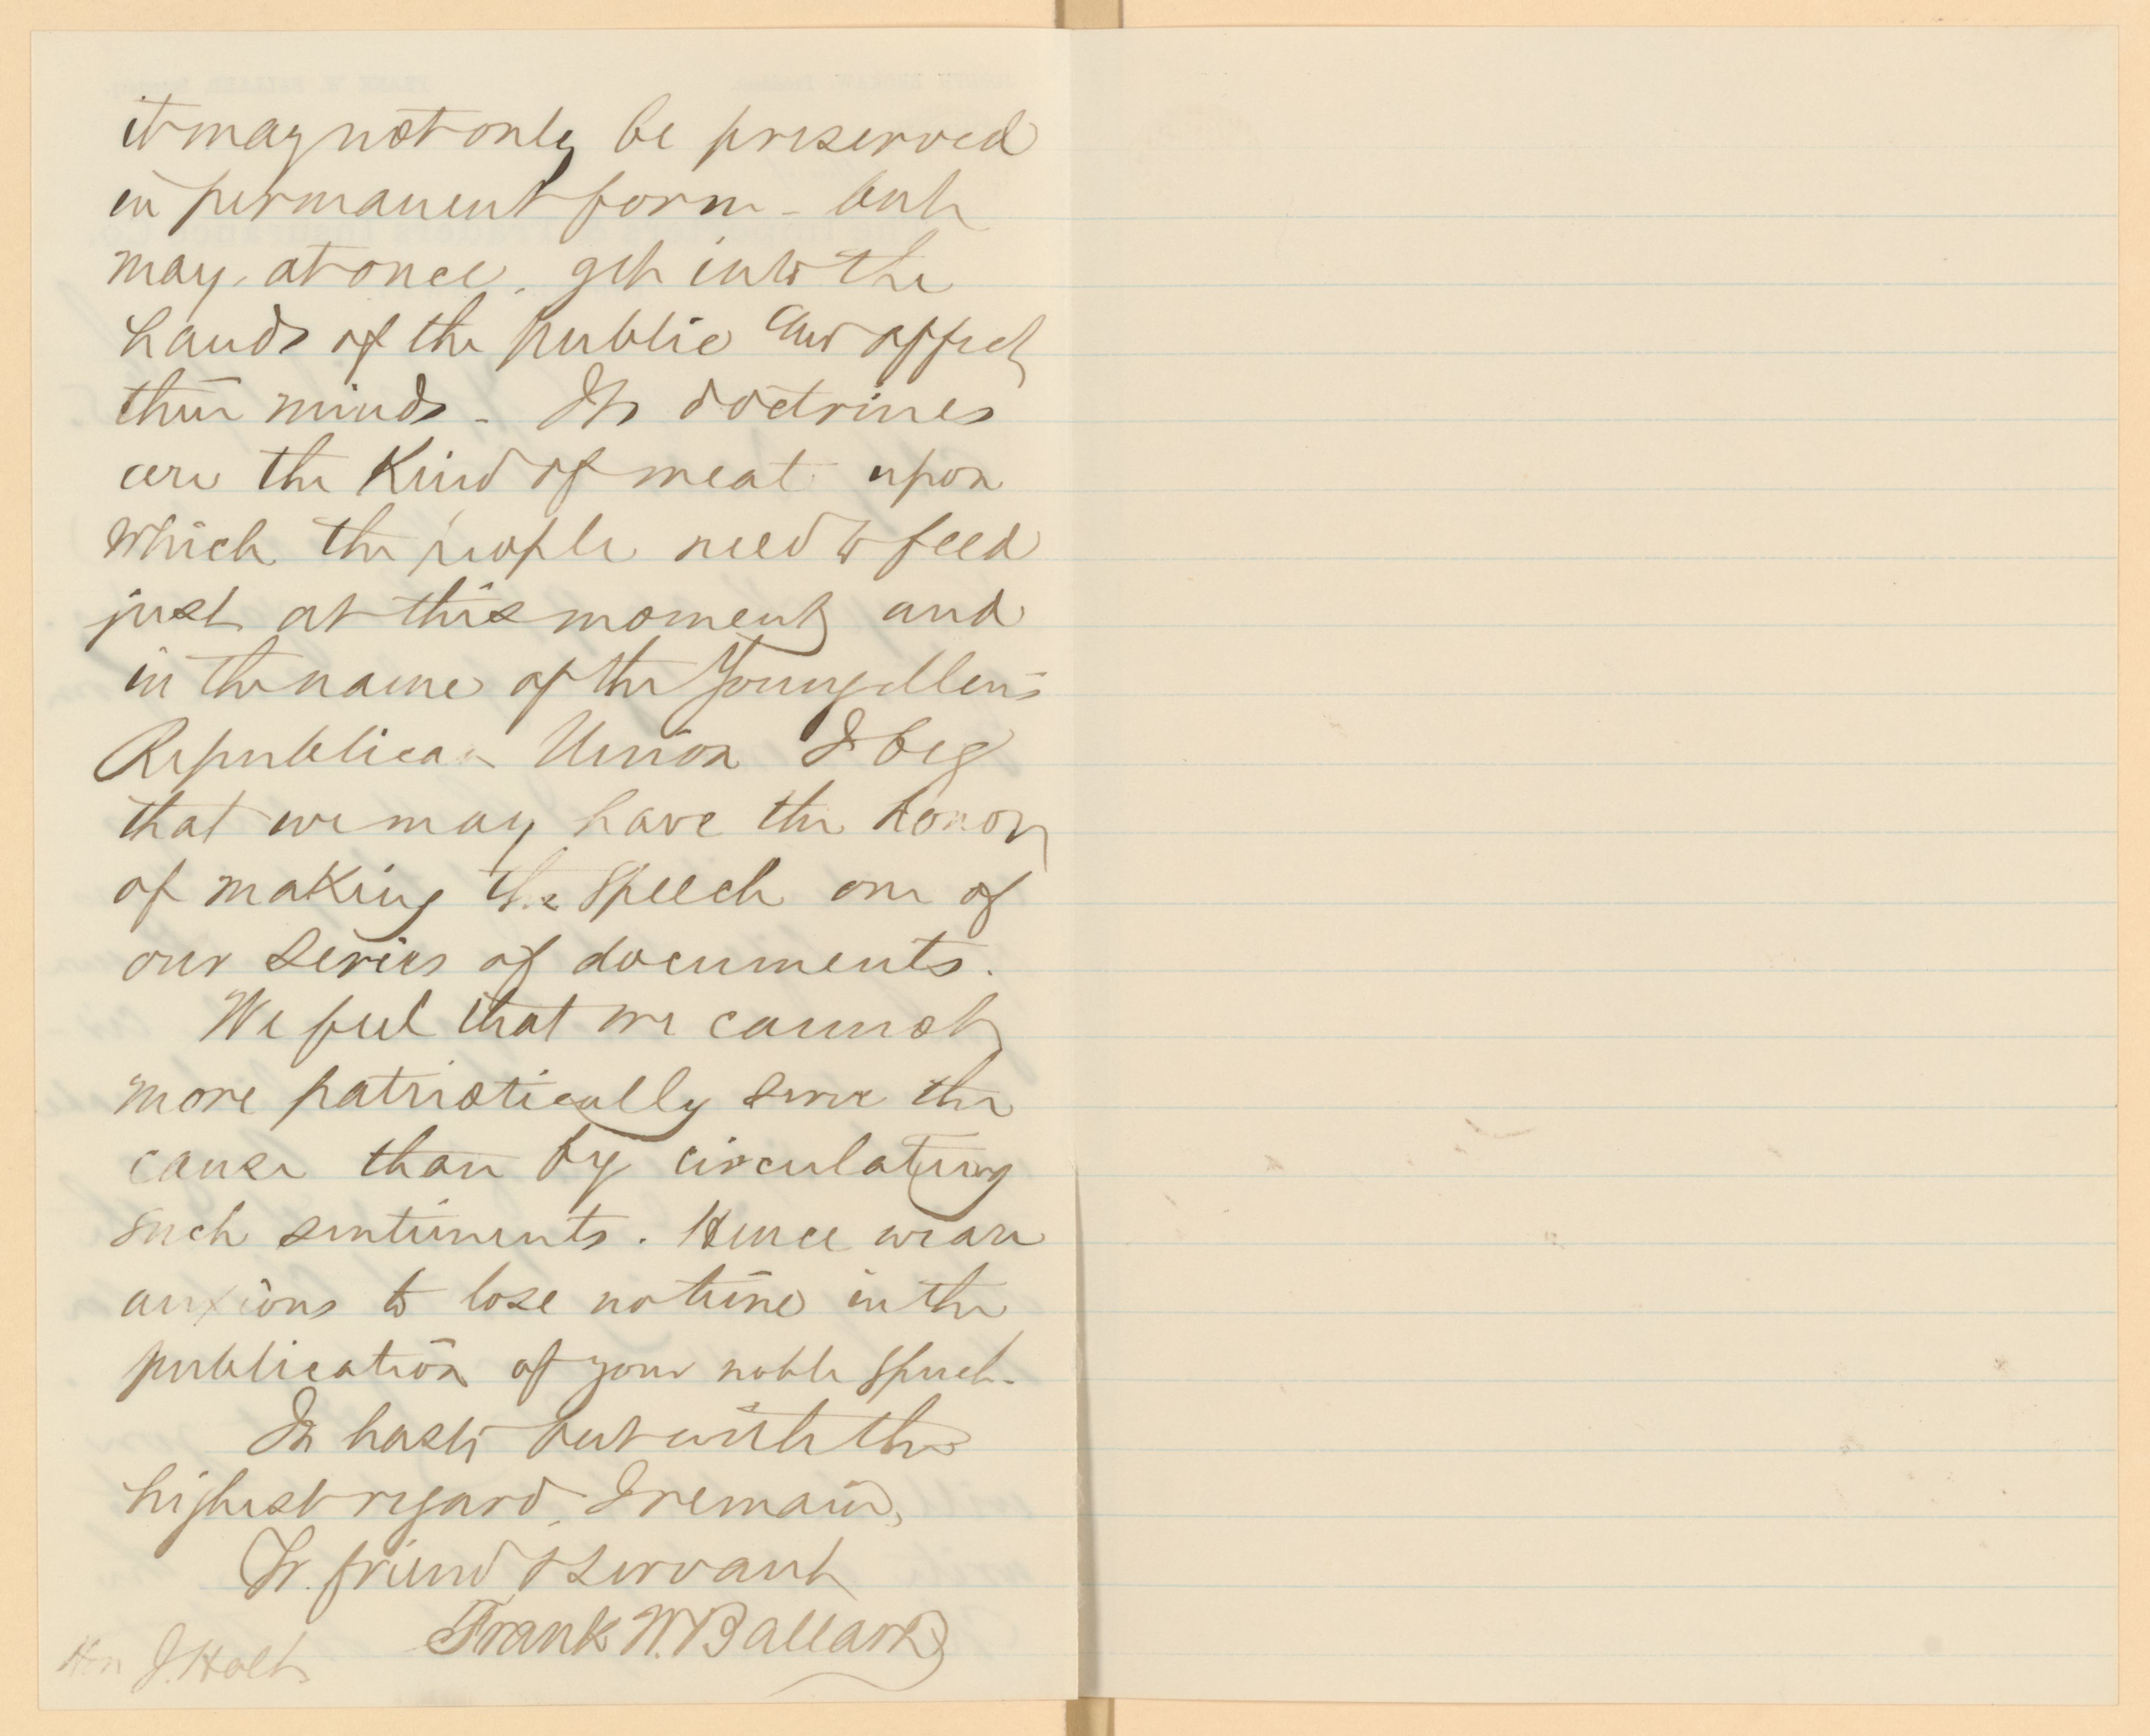 it may not only be preserved
in permanent form - but
may, at once, get into the
hands of the public and affect
their minds - Its doctrines
are the kind of meat upon
which the people need to feed
just at this moment, and
in the name of the Young Men's
Republican Union I beg
that we may have the honor
of making the speech one of
our series of documents.
We feel that we cannot
more patriotically serve the
cause than by circulating
such sentiments. Hence we are
anxious to lose no time in the
publication of your noble speech.
In haste but with the
highest regard, I remain,
Yr. friend & servant
Frank W. Ballard
Hon J. Holt